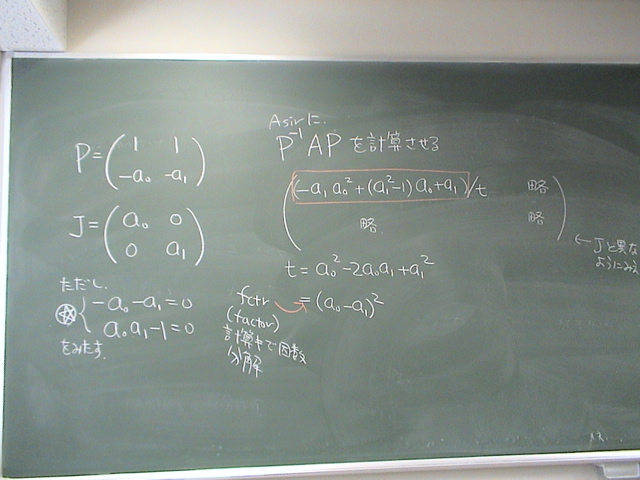 P=(1 1
-a₀ -a₁)
J=(a₀ 0
0 a₁)
ただし、
-a₀-a₁=0
a₀a₁-1=0
をみたす。
Asirに、
P⁻¹APを計算させる
(-a₁a₀²+(a₁²-1)a₀+a₁)/t 略
略 略
←Jと異な
ようにみえ
t=a₀²-2a₀a₁+a₁²
=(a₀-a₁)²
fctr
(factor)
計算中で因数
分解